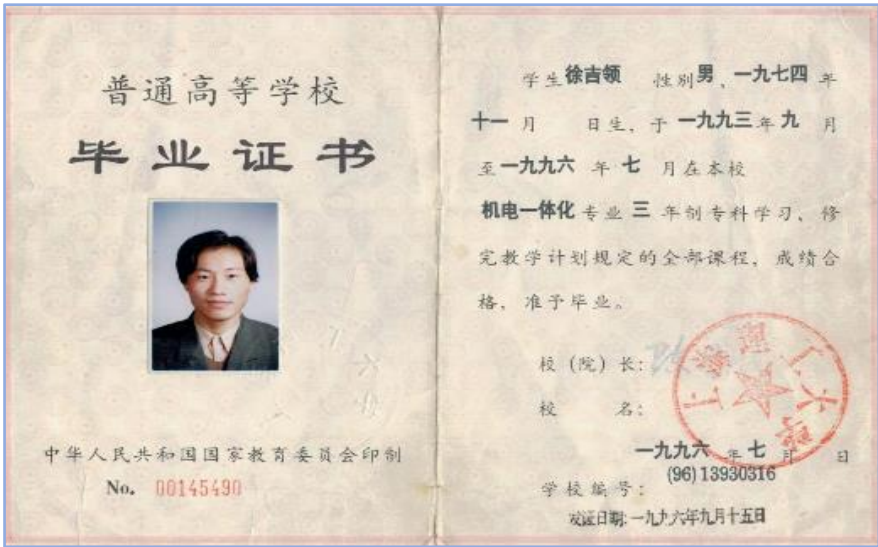 普通高等学校
毕业证书
中华人民共和国国家教育委员会印制
No. 00145490
学生徐吉领 性别男、一九七四年
十一月 日生、于一九九三年九月
至一九九六年七月在本校
机电一体化专业三年制专科学习、修
完教学计划规定的全部课程、成绩合
格、准予毕业。
校（院）长：陈
校 名：
上海理工大学
一九九六年七月 日
(96)13930316
学校编号：
发证日期:一九九六年九月十五日